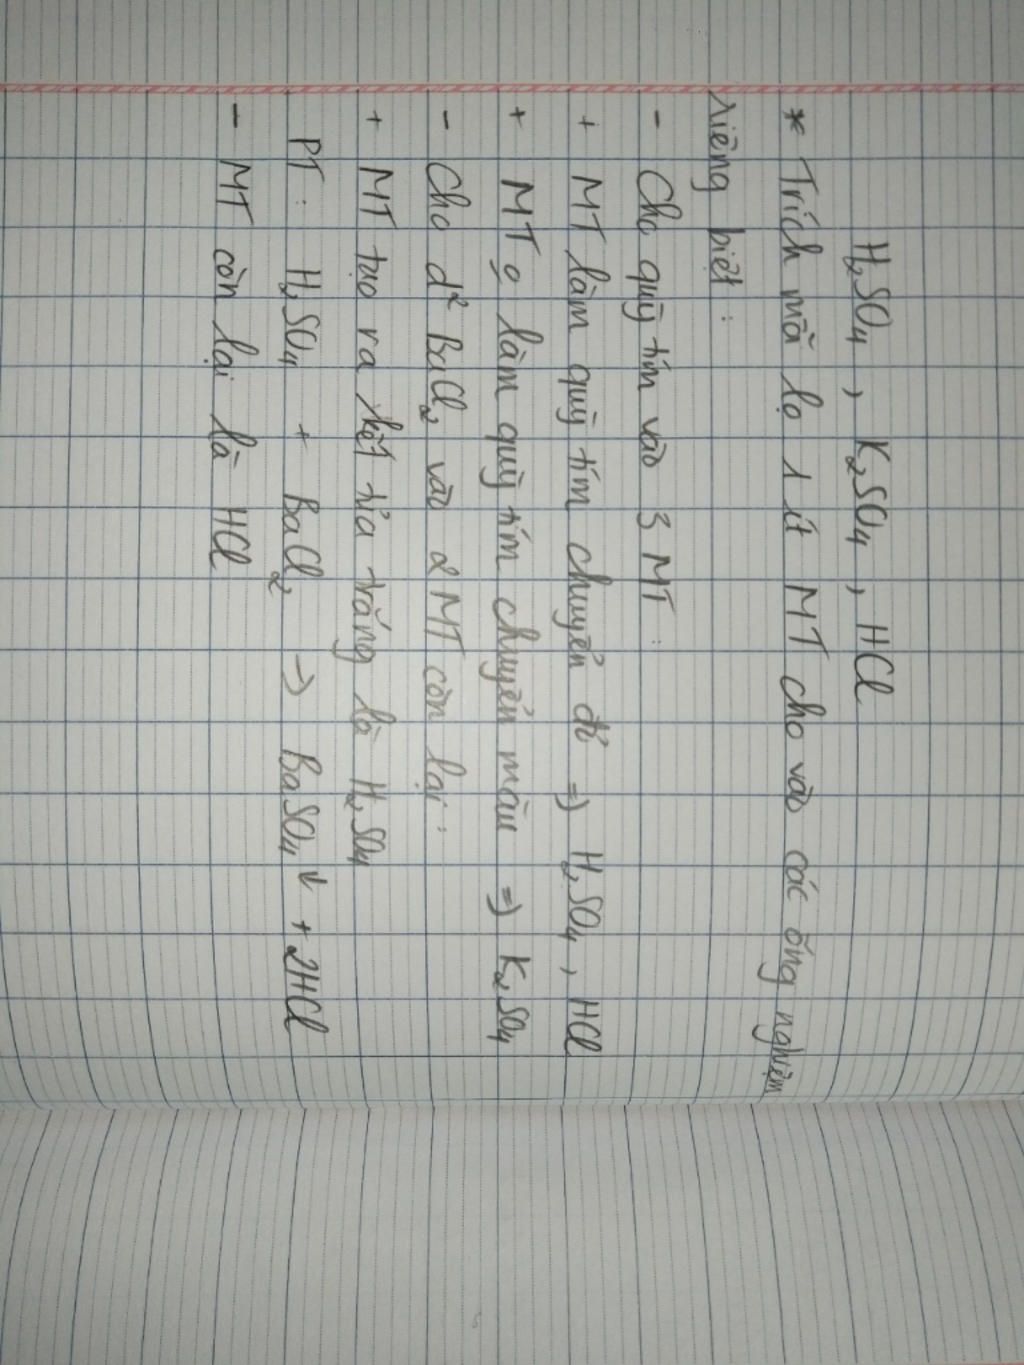 H₂SO₄, K₂SO₄, HCl
* Trích mỗi lọ 1 ít MT cho vào các ống nghiệm
riêng biệt:
- Cho quỳ tím vào 3 MT:
+ MT làm quỳ tím chuyển đỏ => H₂SO₄, HCl
+ MT o làm quỳ tím chuyển màu => K₂SO₄
- Cho d² BaCl₂ vào 2 MT còn lại:
+ MT tạo ra kết tủa trắng là H₂SO₄
PT: H₂SO₄ + BaCl₂ → BaSO₄↓ + 2HCl
- MT còn lại là HCl